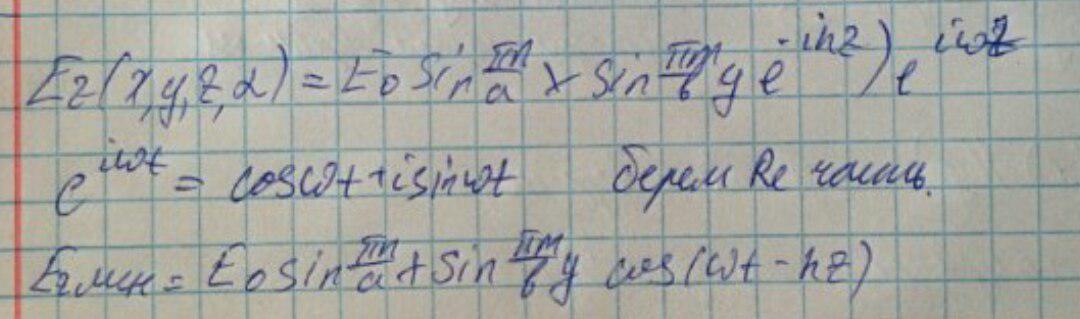 Ez(x,y,z,α) = E₀ sin πn/a x sin πm/b y e^-ihz) e^iωt
e^iωt = cosωt + i sinωt берем Re часть.
Ezмгн = E₀ sin πn/a x sin πm/b y cos(ωt - hz)